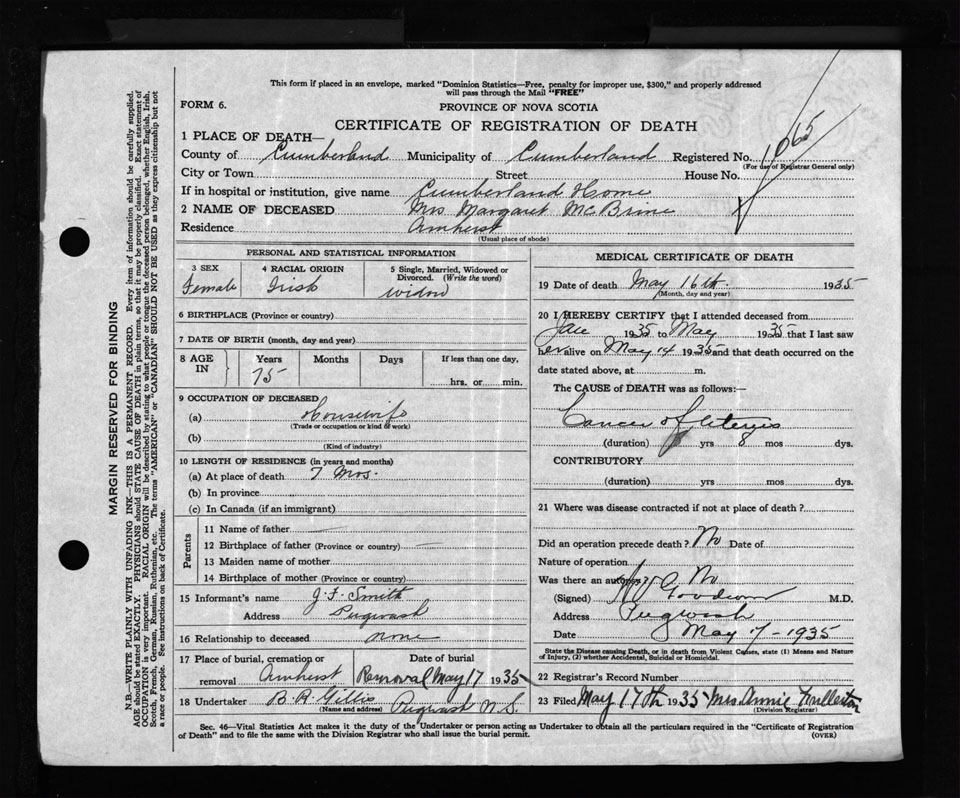 This form if placed in an envelope, marked "Dominion Statistics—Free, penalty for improper use, $300," and properly addressed
will pass through the Mail "FREE"
FORM 6.
PROVINCE OF NOVA SCOTIA
CERTIFICATE OF REGISTRATION OF DEATH
1 PLACE OF DEATH—
County of Cumberland Municipality of Cumberland Registered No. 1065
(For use of Registrar General only)
City or Town Street House No.
If in hospital or institution, give name Cumberland Home
2 NAME OF DECEASED Mrs Margaret McBrine
Residence Amherst
(Usual place of abode)
PERSONAL AND STATISTICAL INFORMATION
3 SEX 4 RACIAL ORIGIN 5 Single, Married, Widowed or
Divorced. (Write the word)
Female Irish Widow
6 BIRTHPLACE (Province or country)
7 DATE OF BIRTH (month, day and year)
8 AGE IN Years Months Days If less than one day,
75 hrs. or min.
9 OCCUPATION OF DECEASED
(a) Housewife
(Trade or occupation or kind of work)
(b)
(Kind of industry)
10 LENGTH OF RESIDENCE (in years and months)
(a) At place of death 7 Mos.
(b) In province
(c) In Canada (if an immigrant)
Parents
11 Name of father
12 Birthplace of father (Province or country)
13 Maiden name of mother
14 Birthplace of mother (Province or country)
15 Informant's name J. F. Smith
Address Pugwash
16 Relationship to deceased none
17 Place of burial, cremation or Date of burial
removal Amherst Removal May 17 1935
18 Undertaker B. A. Gillis Pugwash N.S.
(Name and address)
MEDICAL CERTIFICATE OF DEATH
19 Date of death May 16th 1935
(Month, day and year)
20 I HEREBY CERTIFY that I attended deceased from
1935 to May 1935 that I last saw
her alive on May 14 1935 and that death occurred on the
date stated above, at m.
The CAUSE OF DEATH was as follows:—
Cancer of Uterus
(duration) yrs 8 mos dys.
CONTRIBUTORY
(duration) yrs. mos. dys.
21 Where was disease contracted if not at place of death?
Did an operation precede death? No Date of
Nature of operation
Was there an autopsy? No
(Signed) M.D.
Address Pugwash
Date May 17-1935
State the Disease causing Death, or in death from Violent Causes, state (1) Means and Nature
of Injury, (2) whether Accidental, Suicidal or Homicidal.
22 Registrar's Record Number
23 Filed May 17th 1935 Mrs Annie
(Division Registrar)
Sec. 46—Vital Statistics Act makes it the duty of the Undertaker or person acting as Undertaker to obtain all the particulars required in the "Certificate of Registration
of Death" and to file the same with the Division Registrar who shall issue the burial permit.
(OVER)
MARGIN RESERVED FOR BINDING
N.B.—WRITE PLAINLY WITH UNFADING INK—THIS IS A PERMANENT RECORD. Every item of information should be carefully supplied.
AGE should be stated EXACTLY. PHYSICIANS should STATE CAUSE OF DEATH in plain terms, so that it may be properly classified. Exact statement of
OCCUPATION is very important. RACIAL ORIGIN will be described by stating to what people or tongue the deceased person belonged, whether English, Irish,
Scotch, French, German, Russian, Ruthenian, etc. The terms "AMERICAN" or "CANADIAN" SHOULD NOT BE USED as they express citizenship but not
a race or people. See instructions on back of Certificate.